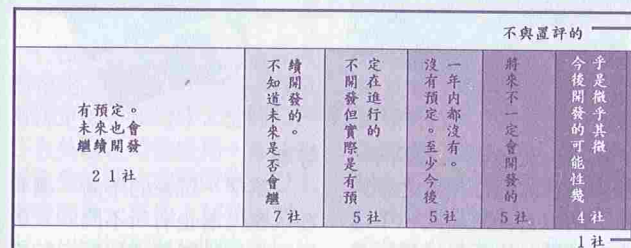 不與置評的
有預定。
未來也會
繼續開發
21社
不知道未來是否會繼
續開發的。
7社
不開發但實際是有預
定在進行的
5社
沒有預定。至少今後
一年內都沒有。
5社
將來不一定會開發的
5社
今後開發的可能性幾
乎是微乎其微
4社
1社